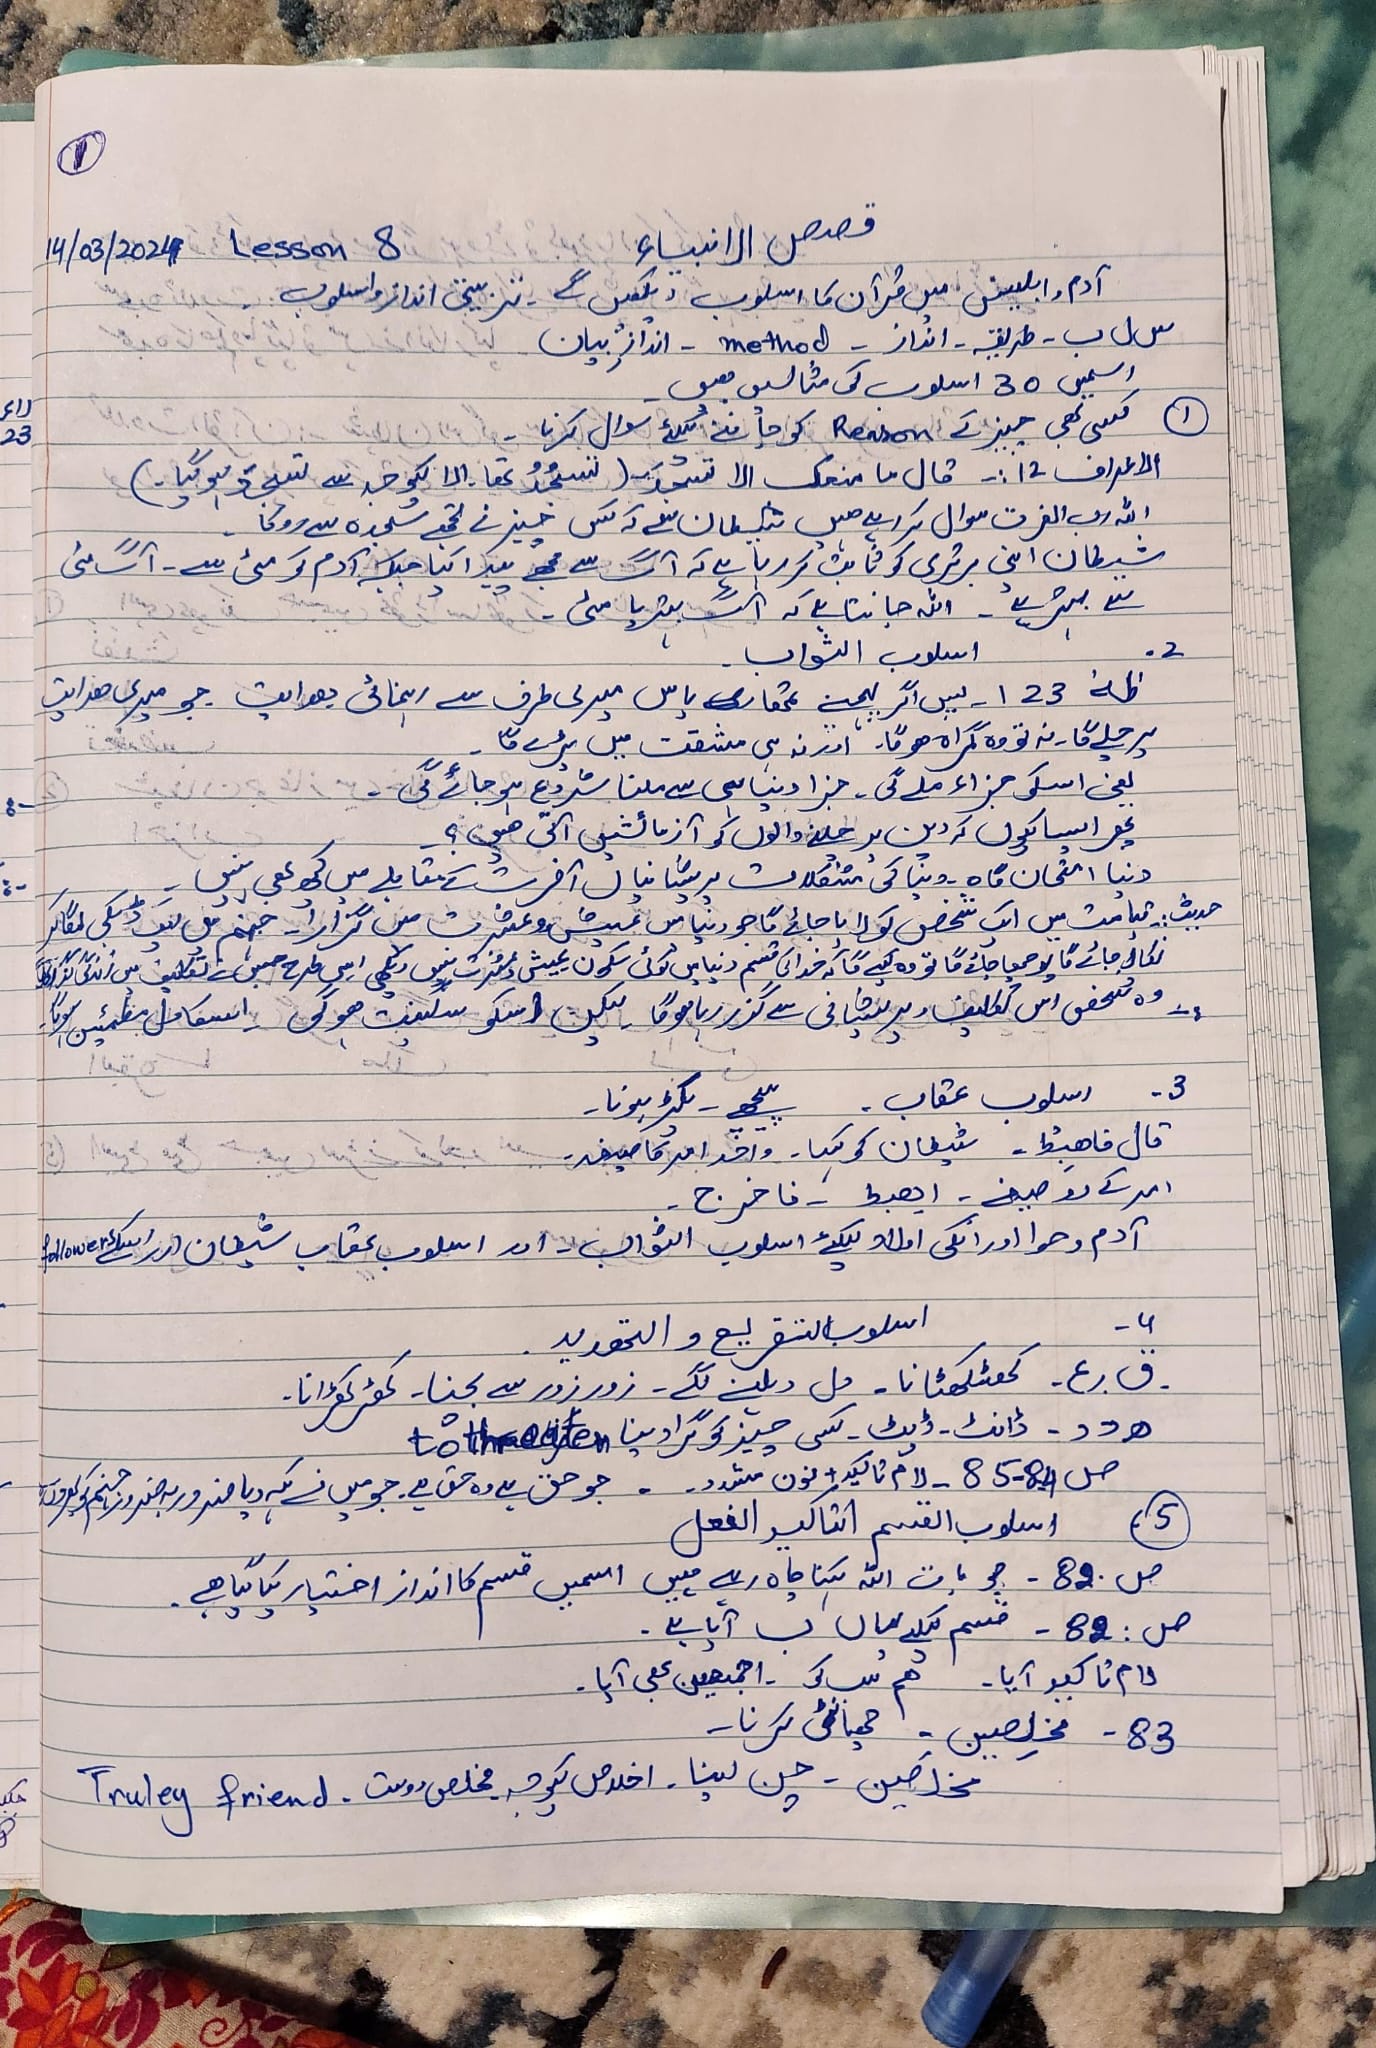 1
قصص الانبیاء Lesson 8 14/03/2024
آدم و ابلیس میں قرآن کا اسلوب دیکھیں گے۔ تربیتی انداز و اسلوب۔
س ل ب۔ طریقہ۔ انداز۔ method۔ اندازِ بیان
اسمیں 30 اسلوب کی مثالیں ہیں۔
① کسی بھی چیز کے Reason کو جاننے کیلئے سوال کرنا۔
الاعراف 12:۔ قال ما منعک الا تسجدَ۔ (تسجُدُ تھا۔ الا کیوجہ سے تسجدَ ہو گیا۔)
اللہ رب العزت سوال کر رہے ہیں شیطان سے کہ کس چیز نے تجھے سجدہ سے روکا۔
شیطان اپنی برتری کو ثابت کر رہا ہے کہ آگ سے مجھے پیدا کیا جبکہ آدم کو مٹی سے۔ آگ مٹی
سے بہتر ہے۔ اللہ جانتا ہے کہ آگ بہتر یا مٹی۔
2۔ اسلوب الثواب۔
طٰہٰ 123۔ پس اگر پہنچے تمھارے پاس میری طرف سے رہنمائی ہدایت۔ جو میری ہدایت
پر چلے گا۔ نہ تو وہ گمراہ ہو گا۔ اور نہ ہی مشقت میں پڑے گا۔
یعنی اسکی جزاء ملے گی۔ جزا دنیا ہی سے ملنا شروع ہو جائے گی۔
پھر ایسا کیوں کہ دین پر چلنے والوں کو آزمائشیں آتی ہیں؟
دنیا امتحان گاہ۔ دنیا کی مشکلات پریشانیاں آخرت کے مقابلے میں کچھ بھی نہیں۔
حدیث:۔ قیامت میں ایک شخص کو لایا جائے گا جو دنیا میں عیش و عشرت میں گزارا۔ جہنم میں ایک ڈبکی لگا کر
نکالا جائے گا پوچھا جائے گا تو وہ کہے گا کہ خدا کی قسم دنیا میں کوئی سکون عیش و عشرت نہیں دیکھی اسی طرح جس نے تکالیف میں زندگی گزاری
وہ شخص اس تکالیف و پریشانی سے گزر رہا ہو گا۔ لیکن اسکو سکینت ہو گی۔ اسکا دل مطمئین ہو گا۔
3۔ اسلوب عقاب۔ پیچھے۔ پکڑ ہونا۔
قال فاھبط۔ شیطان کو کہا۔ واحد امر کا صیغہ۔
امر کے دو صیغے۔ اھبط۔ فاخرج۔
آدم و حوا اور انکی اولاد کیلئے اسلوب الثواب۔ اور اسلوب عقاب شیطان اور اسکے followers
4۔ اسلوب التقریع و التھدید۔
ق رع۔ کھٹکھٹانا۔ دل دہلنے لگے۔ زور زور سے بجنا۔ کھڑکھڑانا۔
ھ د د۔ ڈانٹ۔ ڈپٹ۔ کسی چیز کو گرا دینا to threaten
ص 84-85۔ لام تاکید + نون مشدد۔ جو حق ہے وہ حق ہے۔ جو میں نے کہہ دیا ضرور بہ ضرور جہنم کو
5۔ اسلوب القسم التاکید الفعل
ص۔ 82۔ جو بات اللہ کہنا چاہ رہے ہیں اسمیں قسم کا انداز اختیار کیا گیا ہے۔
ص: 82۔ قسم کیلئے یہاں ب آیا ہے۔
لام تاکید آیا۔ ھم سب کو۔ اجمعین بھی آیا۔
83۔ مخلِصین۔ چھانٹی کرنا۔
مخلَصین۔ چن لینا۔ اخلاص کیوجہ مخلص دوست۔ Truley friend.